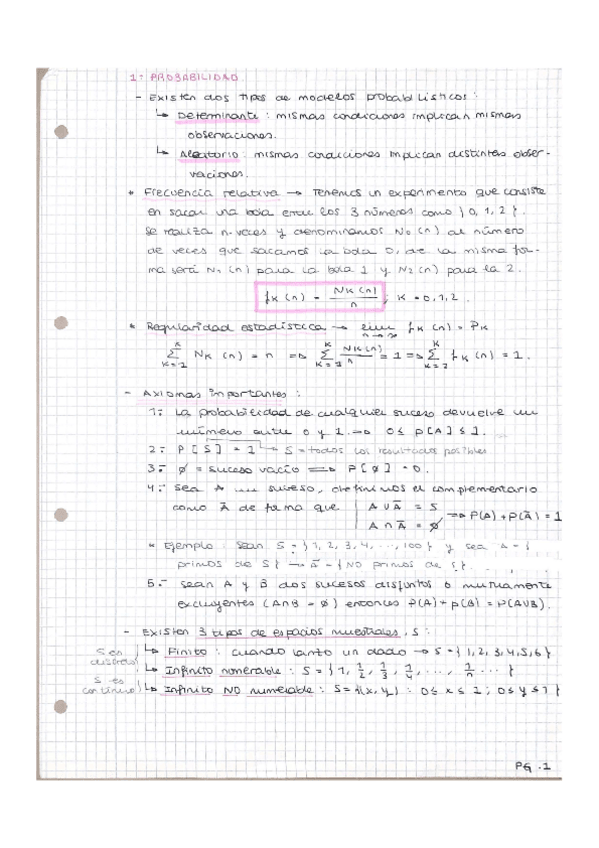 1: PROBABILIDAD.
- Existen dos tipos de modelos probabilísticos:
↳ Determinante: mismas condiciones implican mismas
observaciones.
↳ Aleatorio: mismas condiciones implican distintas obser-
vaciones.
* Frecuencia relativa → Tenemos un experimento que consiste
en sacar una bola entre los 3 números como {0, 1, 2}.
Se realiza n veces y denominamos N₀(n) al número
de veces que sacamos la bola 0, de la misma for-
ma será N₁(n) para la bola 1 y N₂(n) para la 2.
fK(n) = NK(n)/n ; K = 0, 1, 2.
* Regularidad estadística → lim n→∞ fK(n) = PK
Σ NK(n) = n ⇒ Σ NK(n)/n = 1 ⇒ Σ fK(n) = 1.
- Axiomas importantes:
1:- La probabilidad de cualquier suceso devuelve un
número entre 0 y 1. → 0 ≤ P[A] ≤ 1.
2:- P[S] = 1 ↳ S = todos los resultados posibles
3:- ∅ = suceso vacío ⇒ P[∅] = 0.
4:- Sea A un suceso, definimos el complementario
como Ā de forma que | A ∪ Ā = S
A ∩ Ā = ∅ ⇒ P(A) + P(Ā) = 1
* Ejemplo: Sean S = {1, 2, 3, 4, ..., 100} y sea A = {
primos de S} → Ā = {NO primos de S}.
5.- Sean A y B dos sucesos disjuntos o mutuamente
excluyentes (A∩B = ∅) entonces P(A) + P(B) = P(A∪B).
- Existen 3 tipos de espacios muestrales, S:
S es discreto
↳ Finito: cuando lanzo un dado → S = {1, 2, 3, 4, 5, 6}
↳ Infinito numerable: S = {1, 1/2, 1/3, 1/4, ..., 1/n ...}
S es continuo
↳ Infinito NO numerable: S = {(x, y) : 0 ≤ x ≤ 1; 0 ≤ y ≤ 1}
PG.1